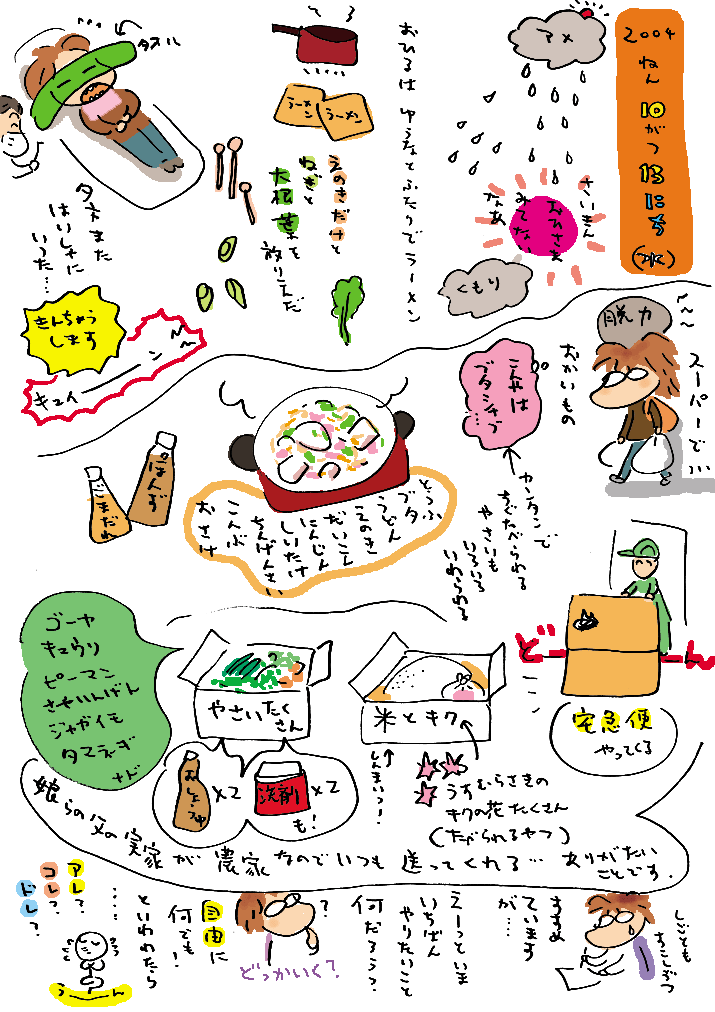 2004
ねん
10
がつ
13
にち
(水)
アメ
さいきん
おひさま
みてない
なあ
くもり
おひるは
ふたりでラーメン
ラーメン
ラーメン
えのきだけと
ねぎと
大根葉を
放りこんだ
タオル
夕方また
はいしゃに
いった…
きんちょう
します
キュイーーン
脱力
スーパーで…
おかいもの
こんやは
ブタシャブ
…
カーンタンで
すぐたべられる
やさいも
いろいろ
いれられる
とうふ
ブタ
うどん
えのき
だいこん
にんじん
しいたけ
ちんげんさい
こんぶ
おさけ
ぽんず
ごまだれ
どーーん
宅急便
やってくる
米とキク
しんまいっ!
うすむらさきの
キクの花たくさん
(たべられるヤツ)
やさいたく
さん
ゴーヤ
キュウリ
ピーマン
さやいんげん
ジャガイモ
タマネギ
など
おしょうゆ
×2
洗剤
×2
も!
娘らの父の実家が農家なのでいつも送ってくれる…ありがたい
ことです.
しごとも
すこしずつ
すすめ
ています
が…
えーっといま
いちばん
やりたいこと
何だろう?
?
どっかいく?
自由に
何でも!
といわれたら
……
アレ?
コレ?
ドレ?
うーーん